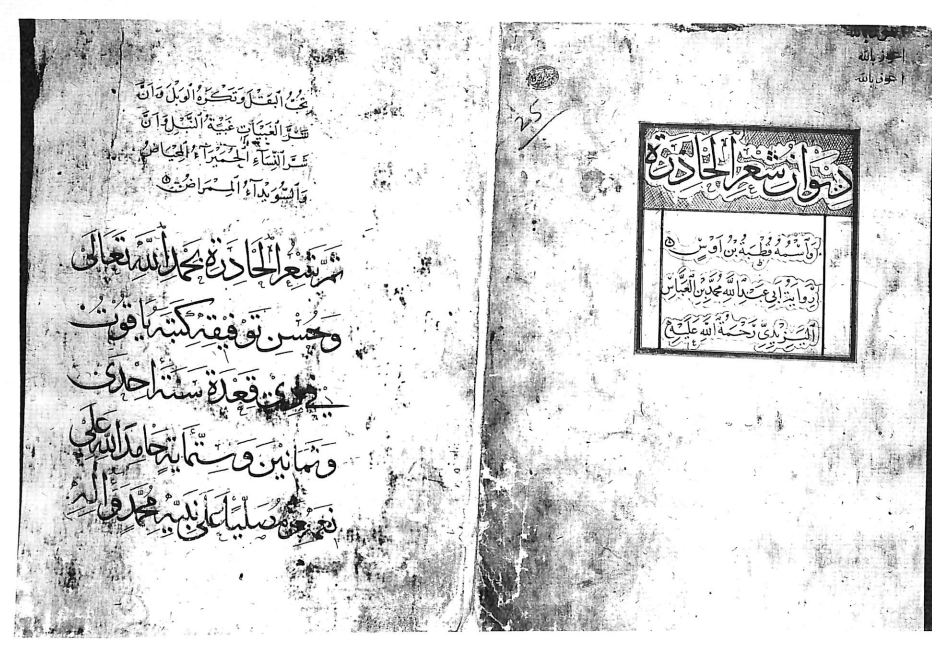 اعوذ بالله
اعوذ بالله
25
ديوان شعر الحادرة
واسمه قطبة بن اوس
رواية ابي عبد الله محمد بن العباس
اليزيدي رحمة الله عليه
تحت البقل وتكره الوبل وان
شر الغيبات غيبة النبل وان
شر النساء الحميراء المحياض
والسويداء الممراض
تم شعر الحادرة بحمد الله تعالى
وحسن توفيقه كتبه ياقوت
في ذي قعدة سنة احدى
وثمانين وستماية حامدا لله على
نعمه ومصليا على نبيه محمد وآله